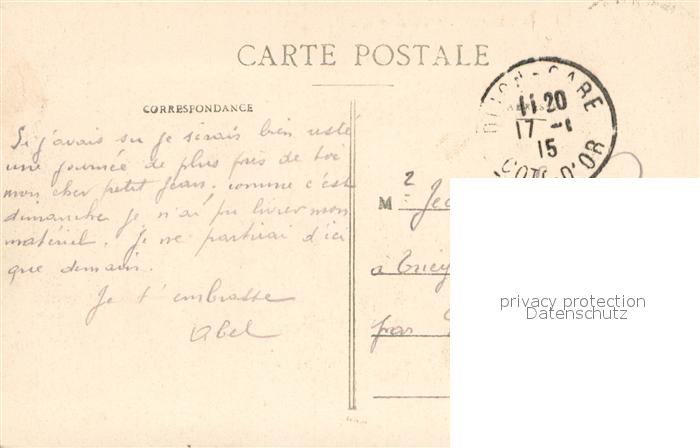 CARTE POSTALE
CORRESPONDANCE
Si j'avais su je serais bien resté
une journée de plus près de toi
mon cher petit Jean. comme c'est
dimanche je n'ai pu livrer mon
matériel. Je ne partirai d'ici
que demain.
Je t'embrasse
Abel
DIJON-GARE
11 20
17 -1
15
COTE-D'OR
M
à
par
privacy protection
Datenschutz